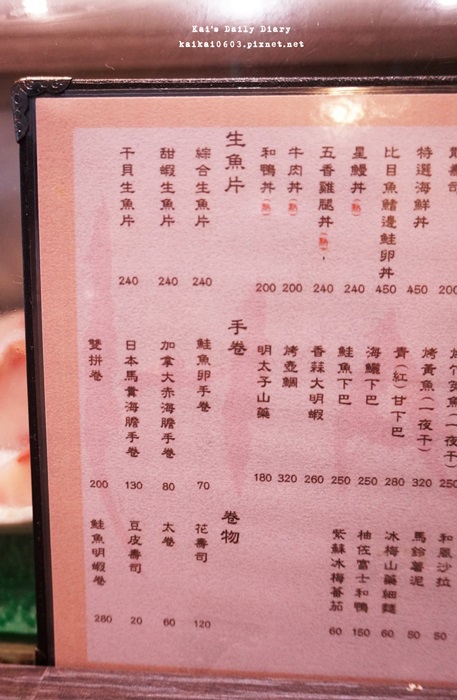 Kai's Daily Diary
kaikai0603.pixnet.net
壽司
200
特選海鮮丼
450
比目魚鰭邊鮭卵丼
450
星鰻丼(熟)
240
五香雞腿丼(熟)
240
牛肉丼(熟)
200
和鴨丼(熟)
200
生魚片
綜合生魚片
240
甜蝦生魚片
240
干貝生魚片
240
(一夜干)
250
烤黃魚(一夜干)
320
青(紅)甘下巴
280
海鱺下巴
250
鮭魚下巴
250
香蒜大明蝦
260
烤壺鯛
320
明太子山藥
180
手卷
鮭魚卵手卷
70
加拿大赤海膽手卷
80
日本馬糞海膽手卷
130
雙拼卷
200
和風沙拉
50
馬鈴薯泥
50
冰梅山藥細麵
60
柚佐富士和鴨
150
紫蘇冰梅蕃茄
60
卷物
花壽司
120
太卷
60
豆皮壽司
20
鮭魚明蝦卷
280